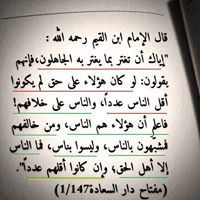 قال الإمام ابن القيم رحمه الله :
"إياك أن تغتر بما يغتر به الجاهلون، فإنهم
يقولون: لو كان هؤلاء على حق لم يكونوا
أقل الناس عدداً، والناس على خلافهم!
فاعلم أن هؤلاء هم الناس، ومن خالفهم
فمشبهون بالناس، وليسوا بناس، فما الناس
إلا أهل الحق، وإن كانوا أقلهم عدداً".
(مفتاح دار السعادة1/147)